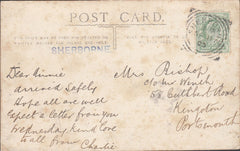 POST CARD.
SHERBORNE
Dear Winnie
arrived safely
Hope all are well
Expect a letter from you
Wednesday Kind Love
to all from
Charlie
Mrs Bishop
c/o Mr Winch
Cuthbert Road
Kingston
Portsmouth